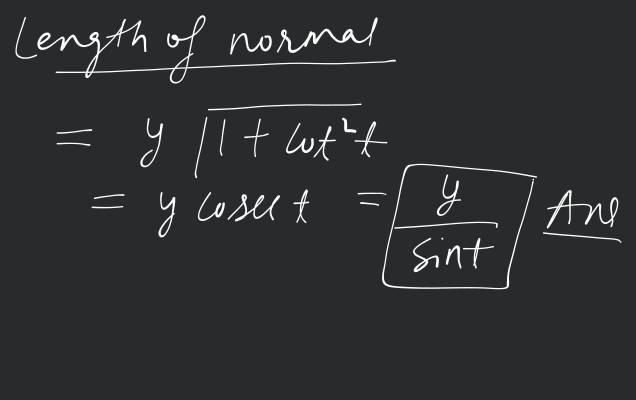 Length of normal
= y √1 + cot²t
= y cosec t = y/sint Ans